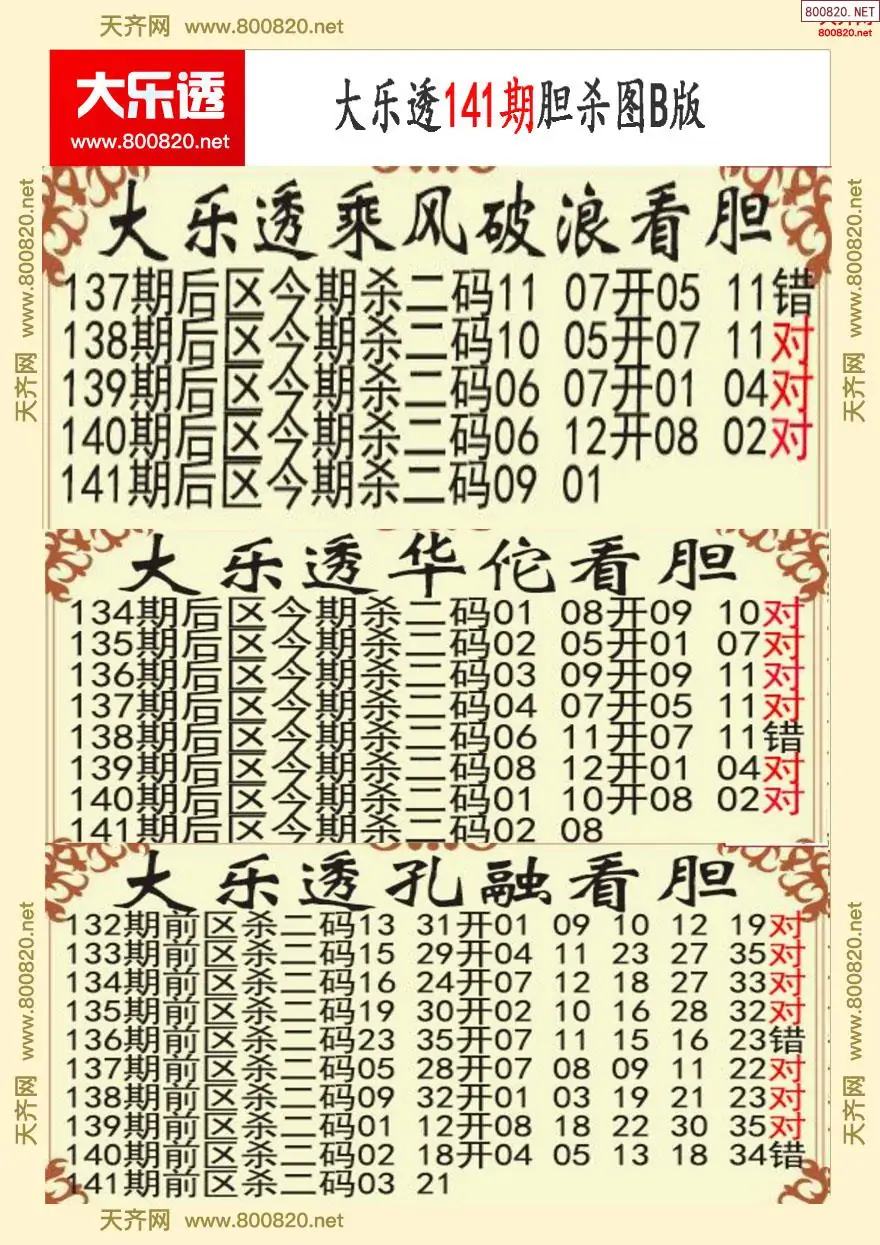 天齐网 www.800820.net
800820.NET
800820.net
大乐透
www.800820.net
大乐透141期胆杀图B版
大乐透乘风破浪看胆
137期后区今期杀二码11 07开05 11错
138期后区今期杀二码10 05开07 11对
139期后区今期杀二码06 07开01 04对
140期后区今期杀二码06 12开08 02对
141期后区今期杀二码09 01
大乐透华佗看胆
134期后区今期杀二码01 08开09 10对
135期后区今期杀二码02 05开01 07对
136期后区今期杀二码03 09开09 11对
137期后区今期杀二码04 07开05 11对
138期后区今期杀二码06 11开07 11错
139期后区今期杀二码08 12开01 04对
140期后区今期杀二码01 10开08 02对
141期后区今期杀二码02 08
大乐透孔融看胆
132期前区杀二码13 31开01 09 10 12 19对
133期前区杀二码15 29开04 11 23 27 35对
134期前区杀二码16 24开07 12 18 27 33对
135期前区杀二码19 30开02 10 16 28 32对
136期前区杀二码23 35开07 11 15 16 23错
137期前区杀二码05 28开07 08 09 11 22对
138期前区杀二码09 32开01 03 19 21 23对
139期前区杀二码01 12开08 18 22 30 35对
140期前区杀二码02 18开04 05 13 18 34错
141期前区杀二码03 21
天齐网 www.800820.net
天齐网 www.800820.net
天齐网 www.800820.net
天齐网 www.800820.net
天齐网 www.800820.net